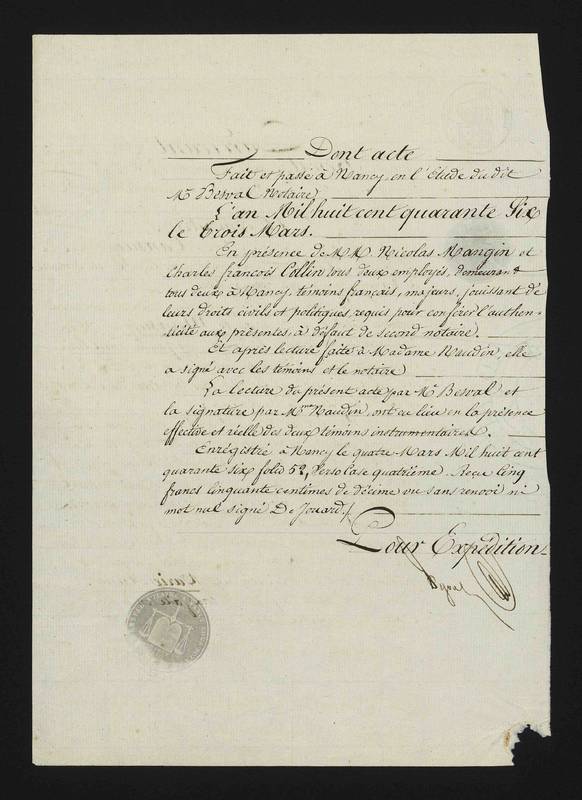 Dont acte
Fait et passé à Nancy, en l'Étude du dit
Me Besval Notaire
L'an Mil huit cent quarante Six
le trois Mars.
En présence de MM. Nicolas Mangin et
Charles françois Collin tous deux employés, demeurant
tous deux à Nancy, témoins français, majeurs, jouissant de
leurs droits civils et politiques, requis pour conférer l'authen-
ticité aux présentes, à défaut de second notaire.
Et après lecture faite à Madame Naudin, elle
a signé avec les témoins et le notaire
La lecture du présent acte par Me Besval et
la signature par Mme Naudin, ont eu lieu en la présence
effective et réelle des deux témoins instrumentaires.
Enregistré à Nancy le quatre Mars Mil huit cent
quarante six folio 52, verso case quatrième. Reçu Cinq
francs Cinquante centimes de décime vu sans renvoi ni
mot nul signé De Jouard./.
Pour Expédition